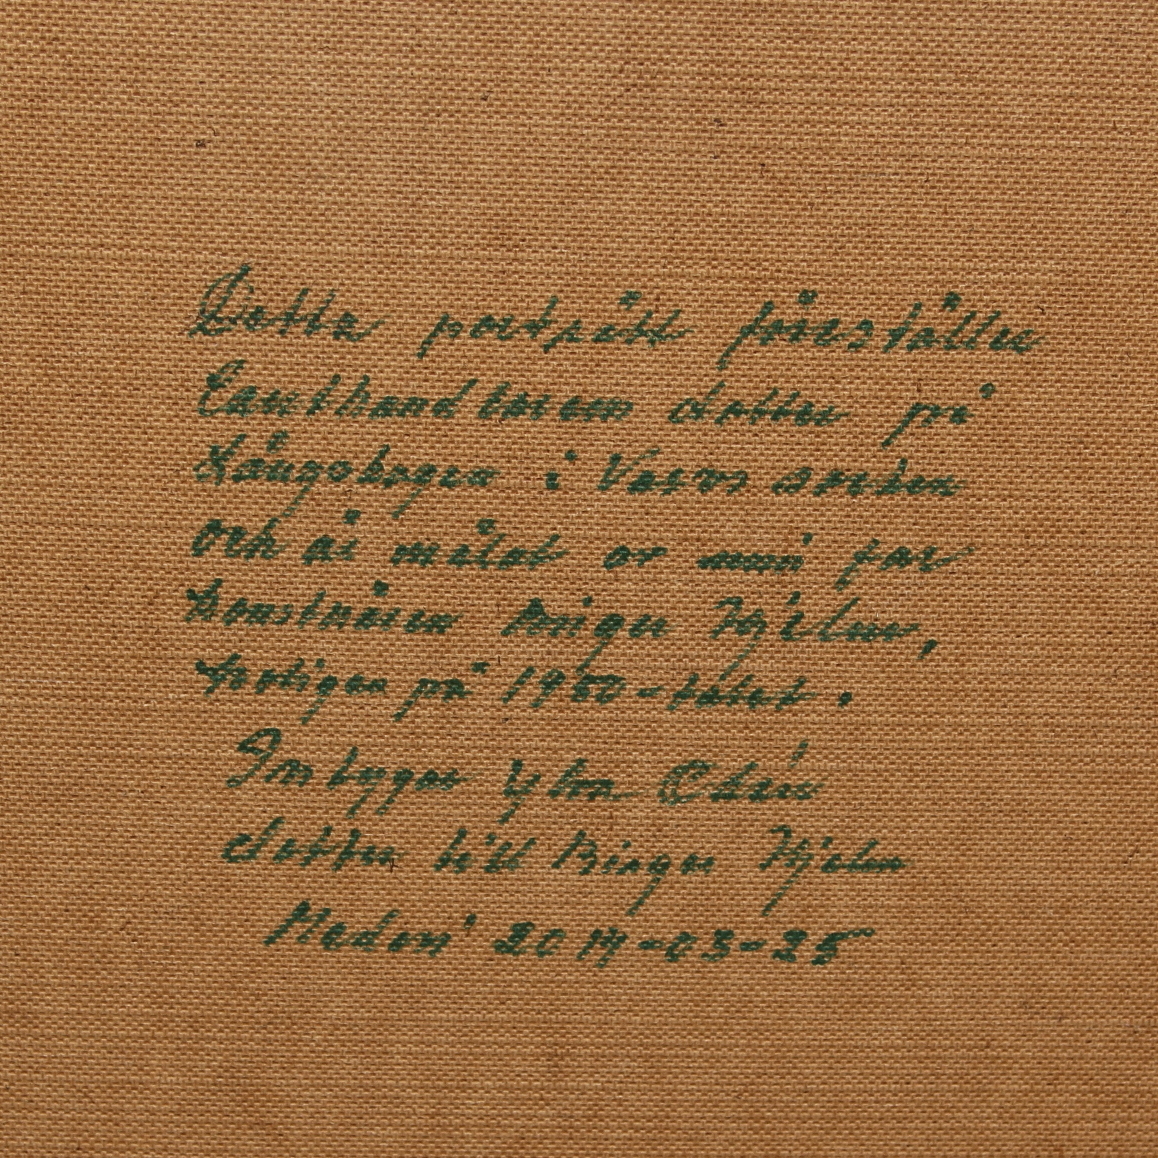 Detta porträtt föreställer
Lanthandlarens dotter på
Långskogen i Västos socken
och är målat av min far
konstnären Birger Hjelm,
troligen på 1950-talet.
Intygar Ylva Edén
dotter till Birger Hjelm
Medevi 2014-03-25